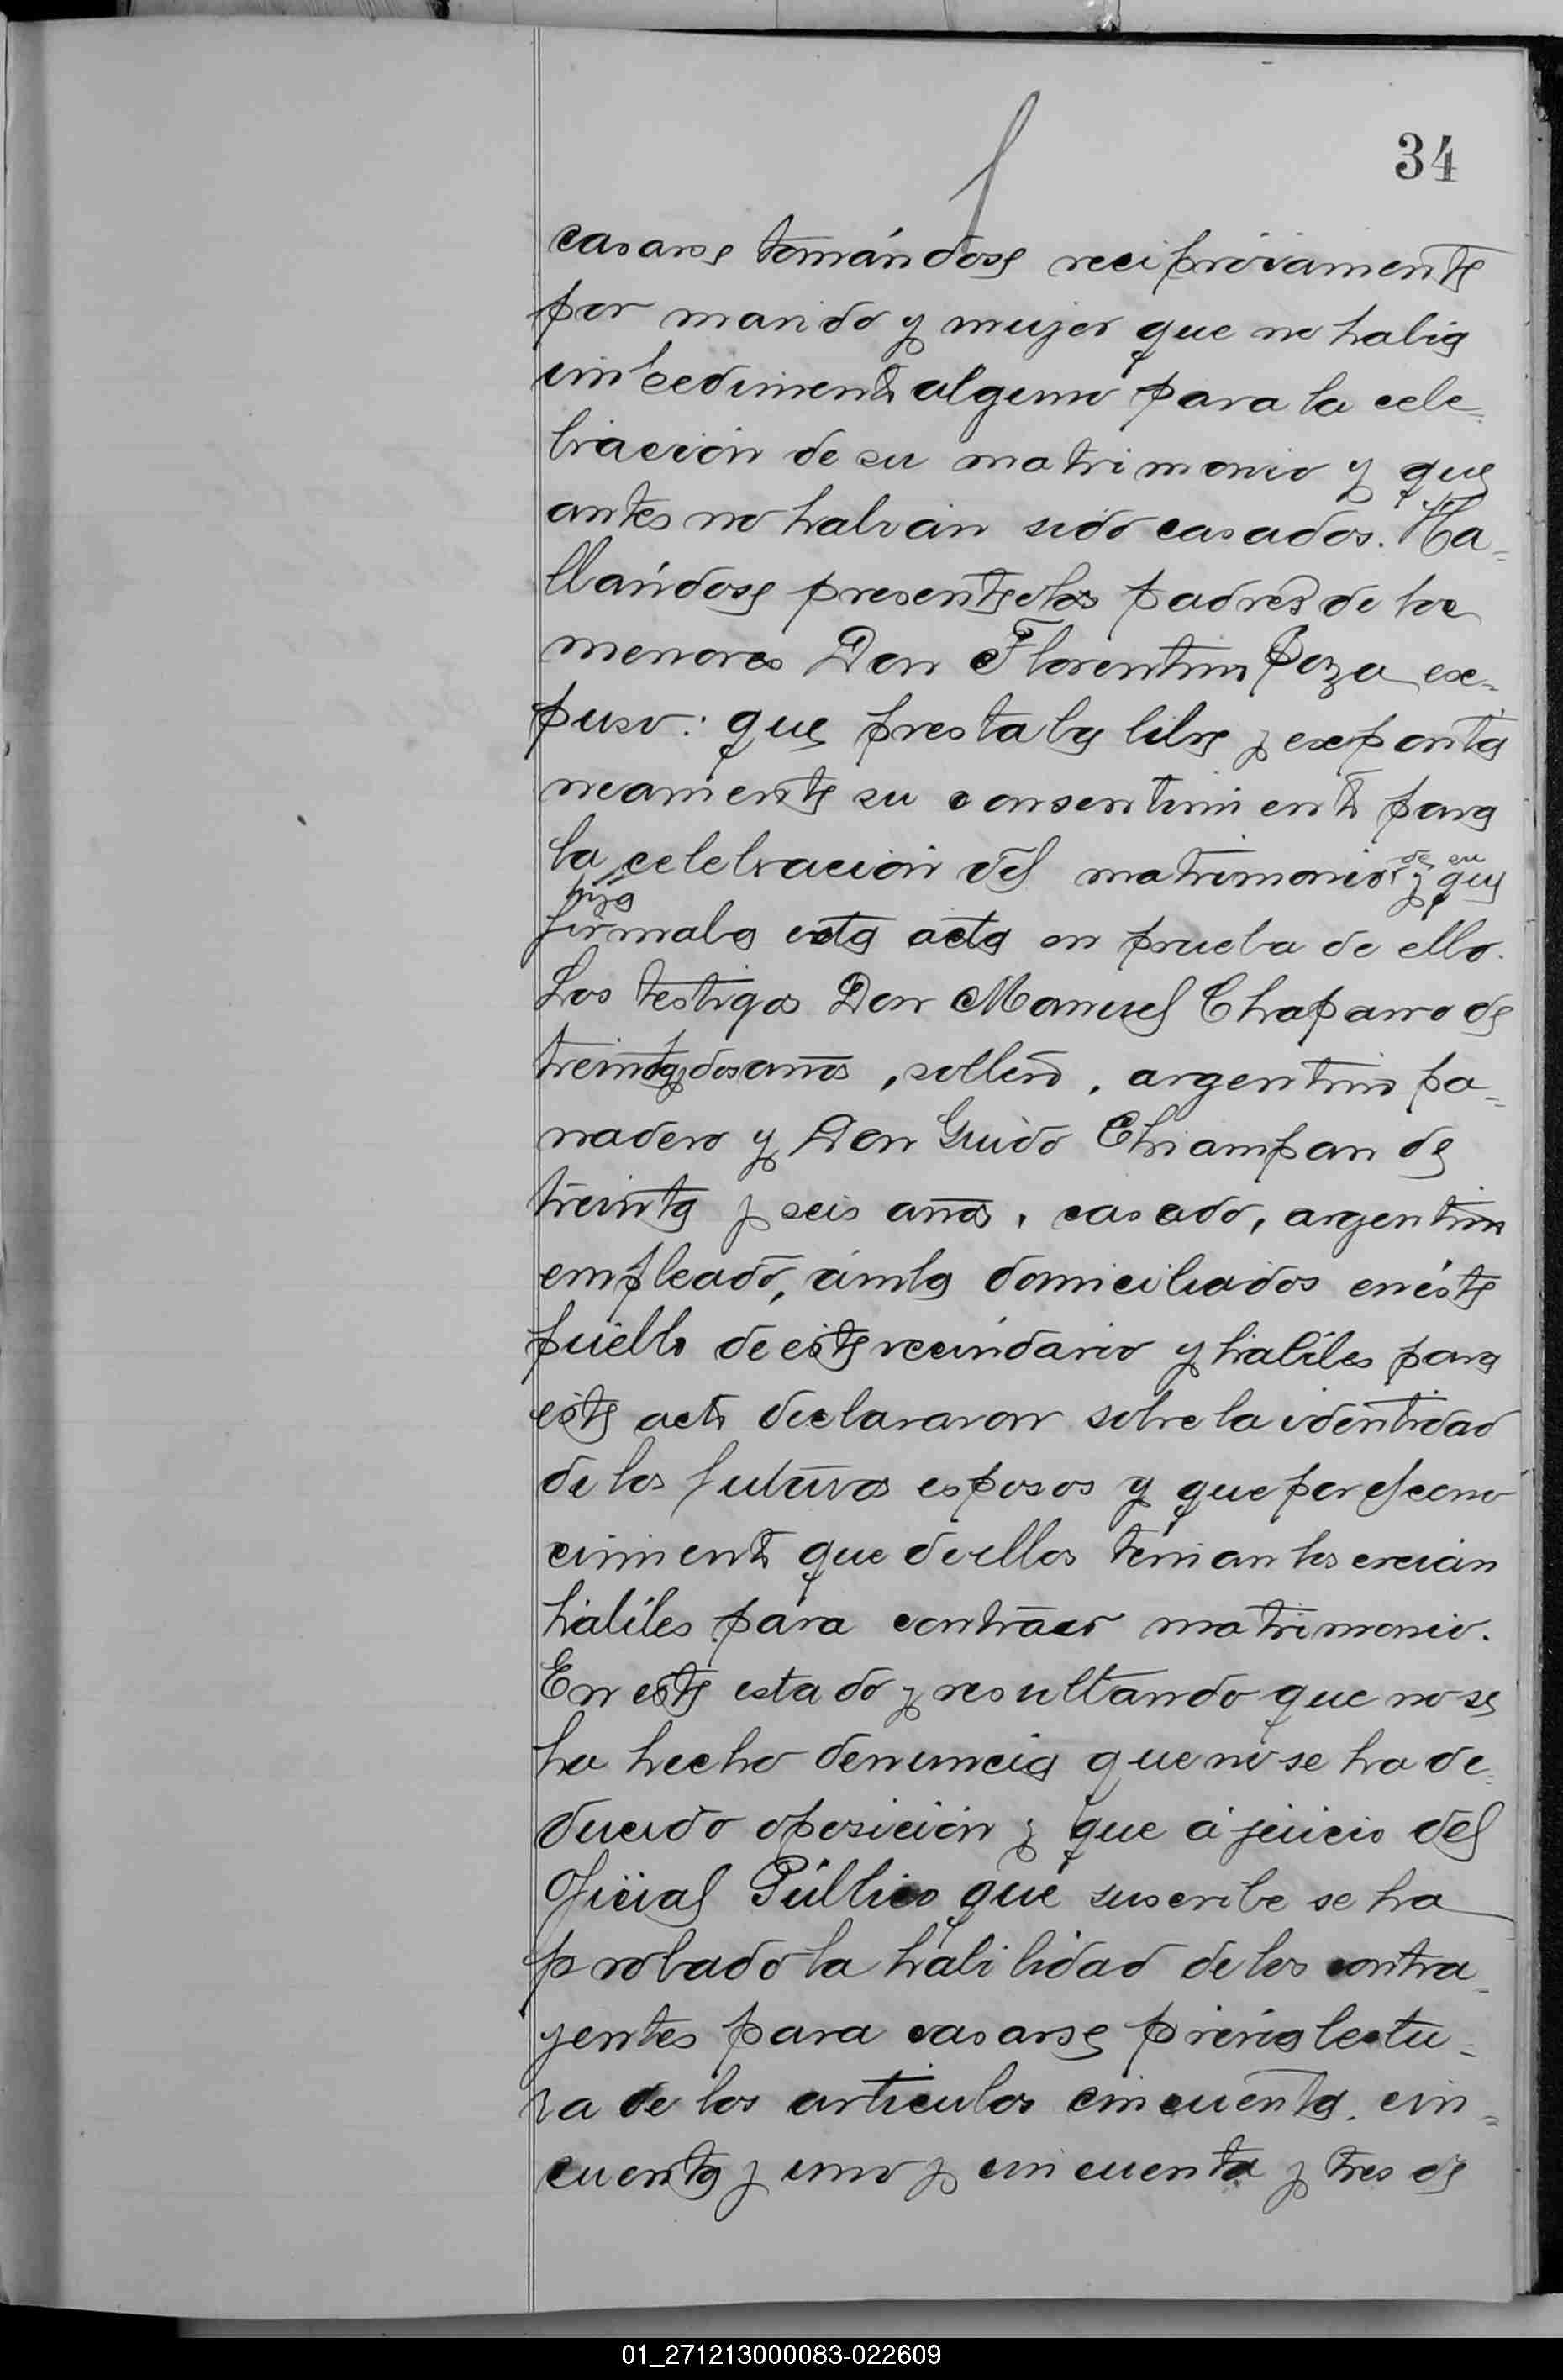 34
casarse tomándose reciprócamente
por marido y mujer que no había
impedimento alguno para la cele-
bración de su matrimonio y que
antes no habían sido casados. Ha-
llándose presente los padres de los
menores Don Florentino Poza ex-
puso: que prestaba libre y exponta
neamente su consentimiento para
la celebración del matrimonio de su
hija y que
firmaba esta acta en prueba de ello.
Los testigos Don Manuel Chaparro de
treinta y dos años, soltero, argentino pa-
nadero y Don Guido Chiampan de
treinta y seis años, casado, argentino
empleado, ámbos domiciliados en éste
pueblo de este vecindario y hábiles para
este acto declararon sobre la identidad
de los futuros esposos y que por el cono
cimiento que de ellos tenían los creían
hábiles para contraer matrimonio.
En este estado y resultando que no se
ha hecho denuncia que no se ha de-
ducido oposición y que á juicio del
Oficial Público que suscribe se ha
probado la habilidad de los contra-
yentes para casarse prévia lectu-
ra de los artículos cincuenta, cin-
cuenta y uno y cincuenta y tres de
01_271213000083-022609